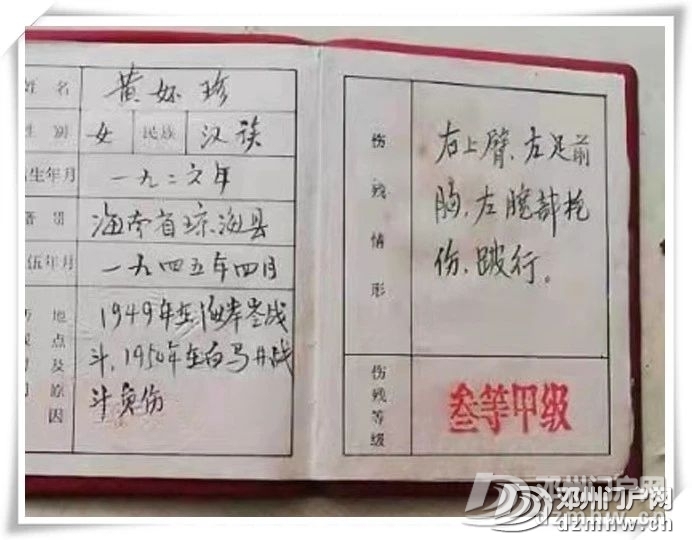 姓 名
黄妚珍
性 别
女
民族
汉族
生年月
一九二六年
籍 贯
海南省琼海县
伍年月
一九四五年四月
地点及原因
1949年在海岸峑战
斗,1950年在白马井战
斗负伤
伤残情形
右上臂、左足前
胸,左腕部枪
伤、跛行。
伤残等级
叁等甲级
邓州门户网
dzmhw.cn
邓州门户网
dzmhw.com